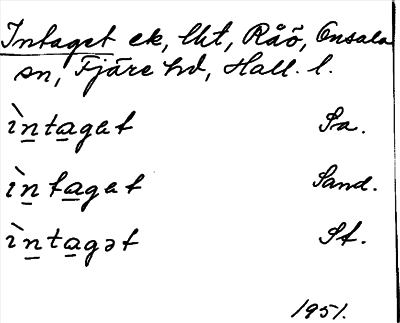 Intaget ek, lht, Råö, Onsala
sn, Fjäre hd, Hall. l.
ìntaget Sa.
ìntaget Sand.
ìntagət St.
1951.